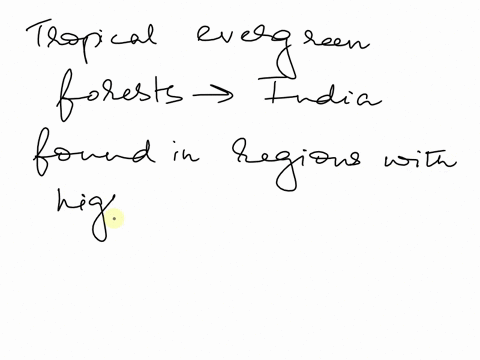 Tropical evergreen
forests → India
found in regions with
hig